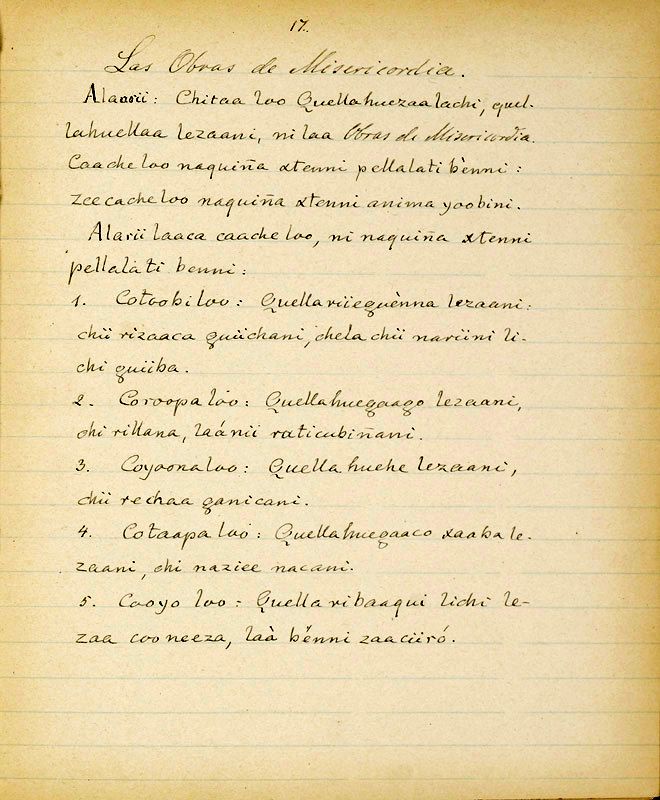 17.
Las Obras de Misericordia.
Alaarii: Chitaa loo Quellahuezaalachi, quel-
lahuellaa lezaani, ni laa Obras de Misericordia.
Caache loo naquiña xtenni pellalati bènni:
zeecache loo naquiña xtenni anima yoobini.
Alarii laaca caache loo, ni naquiña xtenni
pellalati benni:
1. Cotoobi loo: Quella riieguènna lezaani:
chii rizaaca guiichani, chela chii nariini li-
chi guiiba.
2. Coroopa loo: Quellahuegaago lezaani,
chi rillana, laánii raticubiñani.
3. Coyoona loo: Quella huehe lezaani,
chii rechaa ganicani.
4. Cotaapa loo: Quellahuegaaco xaaba le-
zaani, chi naziee nacani.
5. Cooyo loo: Quella ribaaqui lichi le-
zaa coo neeza, laà bènni zaaciiró.